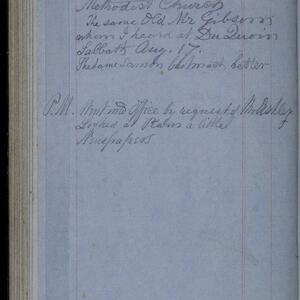 Methodist Church
The same Old Mr Gibson
whom I heard at Du Quoin
Sabbath Aug. 17.
The same Sermon almost better
P.M. Went into Office by request of Mr Ashley
Looked at Plans a little
Newspapers